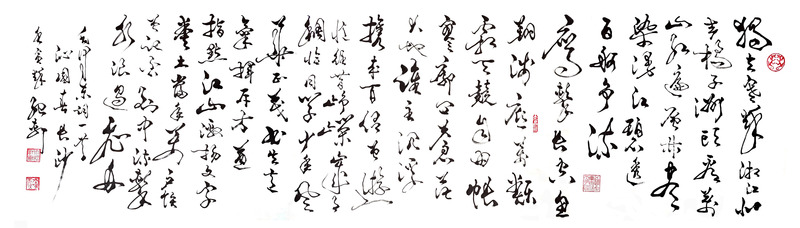 独立寒秋湘江北
去橘子洲头看万
山红遍层林尽
染漫江碧透
百舸争流
鹰击长空鱼
翔浅底万类
霜天竞自由怅
寥廓问苍茫
大地谁主沉浮
携来百侣曾游
忆往昔峥嵘岁月
稠恰同学少年风
华正茂书生意
气挥斥方遒
指点江山激扬文字
粪土当年万户侯
曾记否到中流击
水浪遏飞舟
毛泽东词一首
沁园春长沙
庚寅